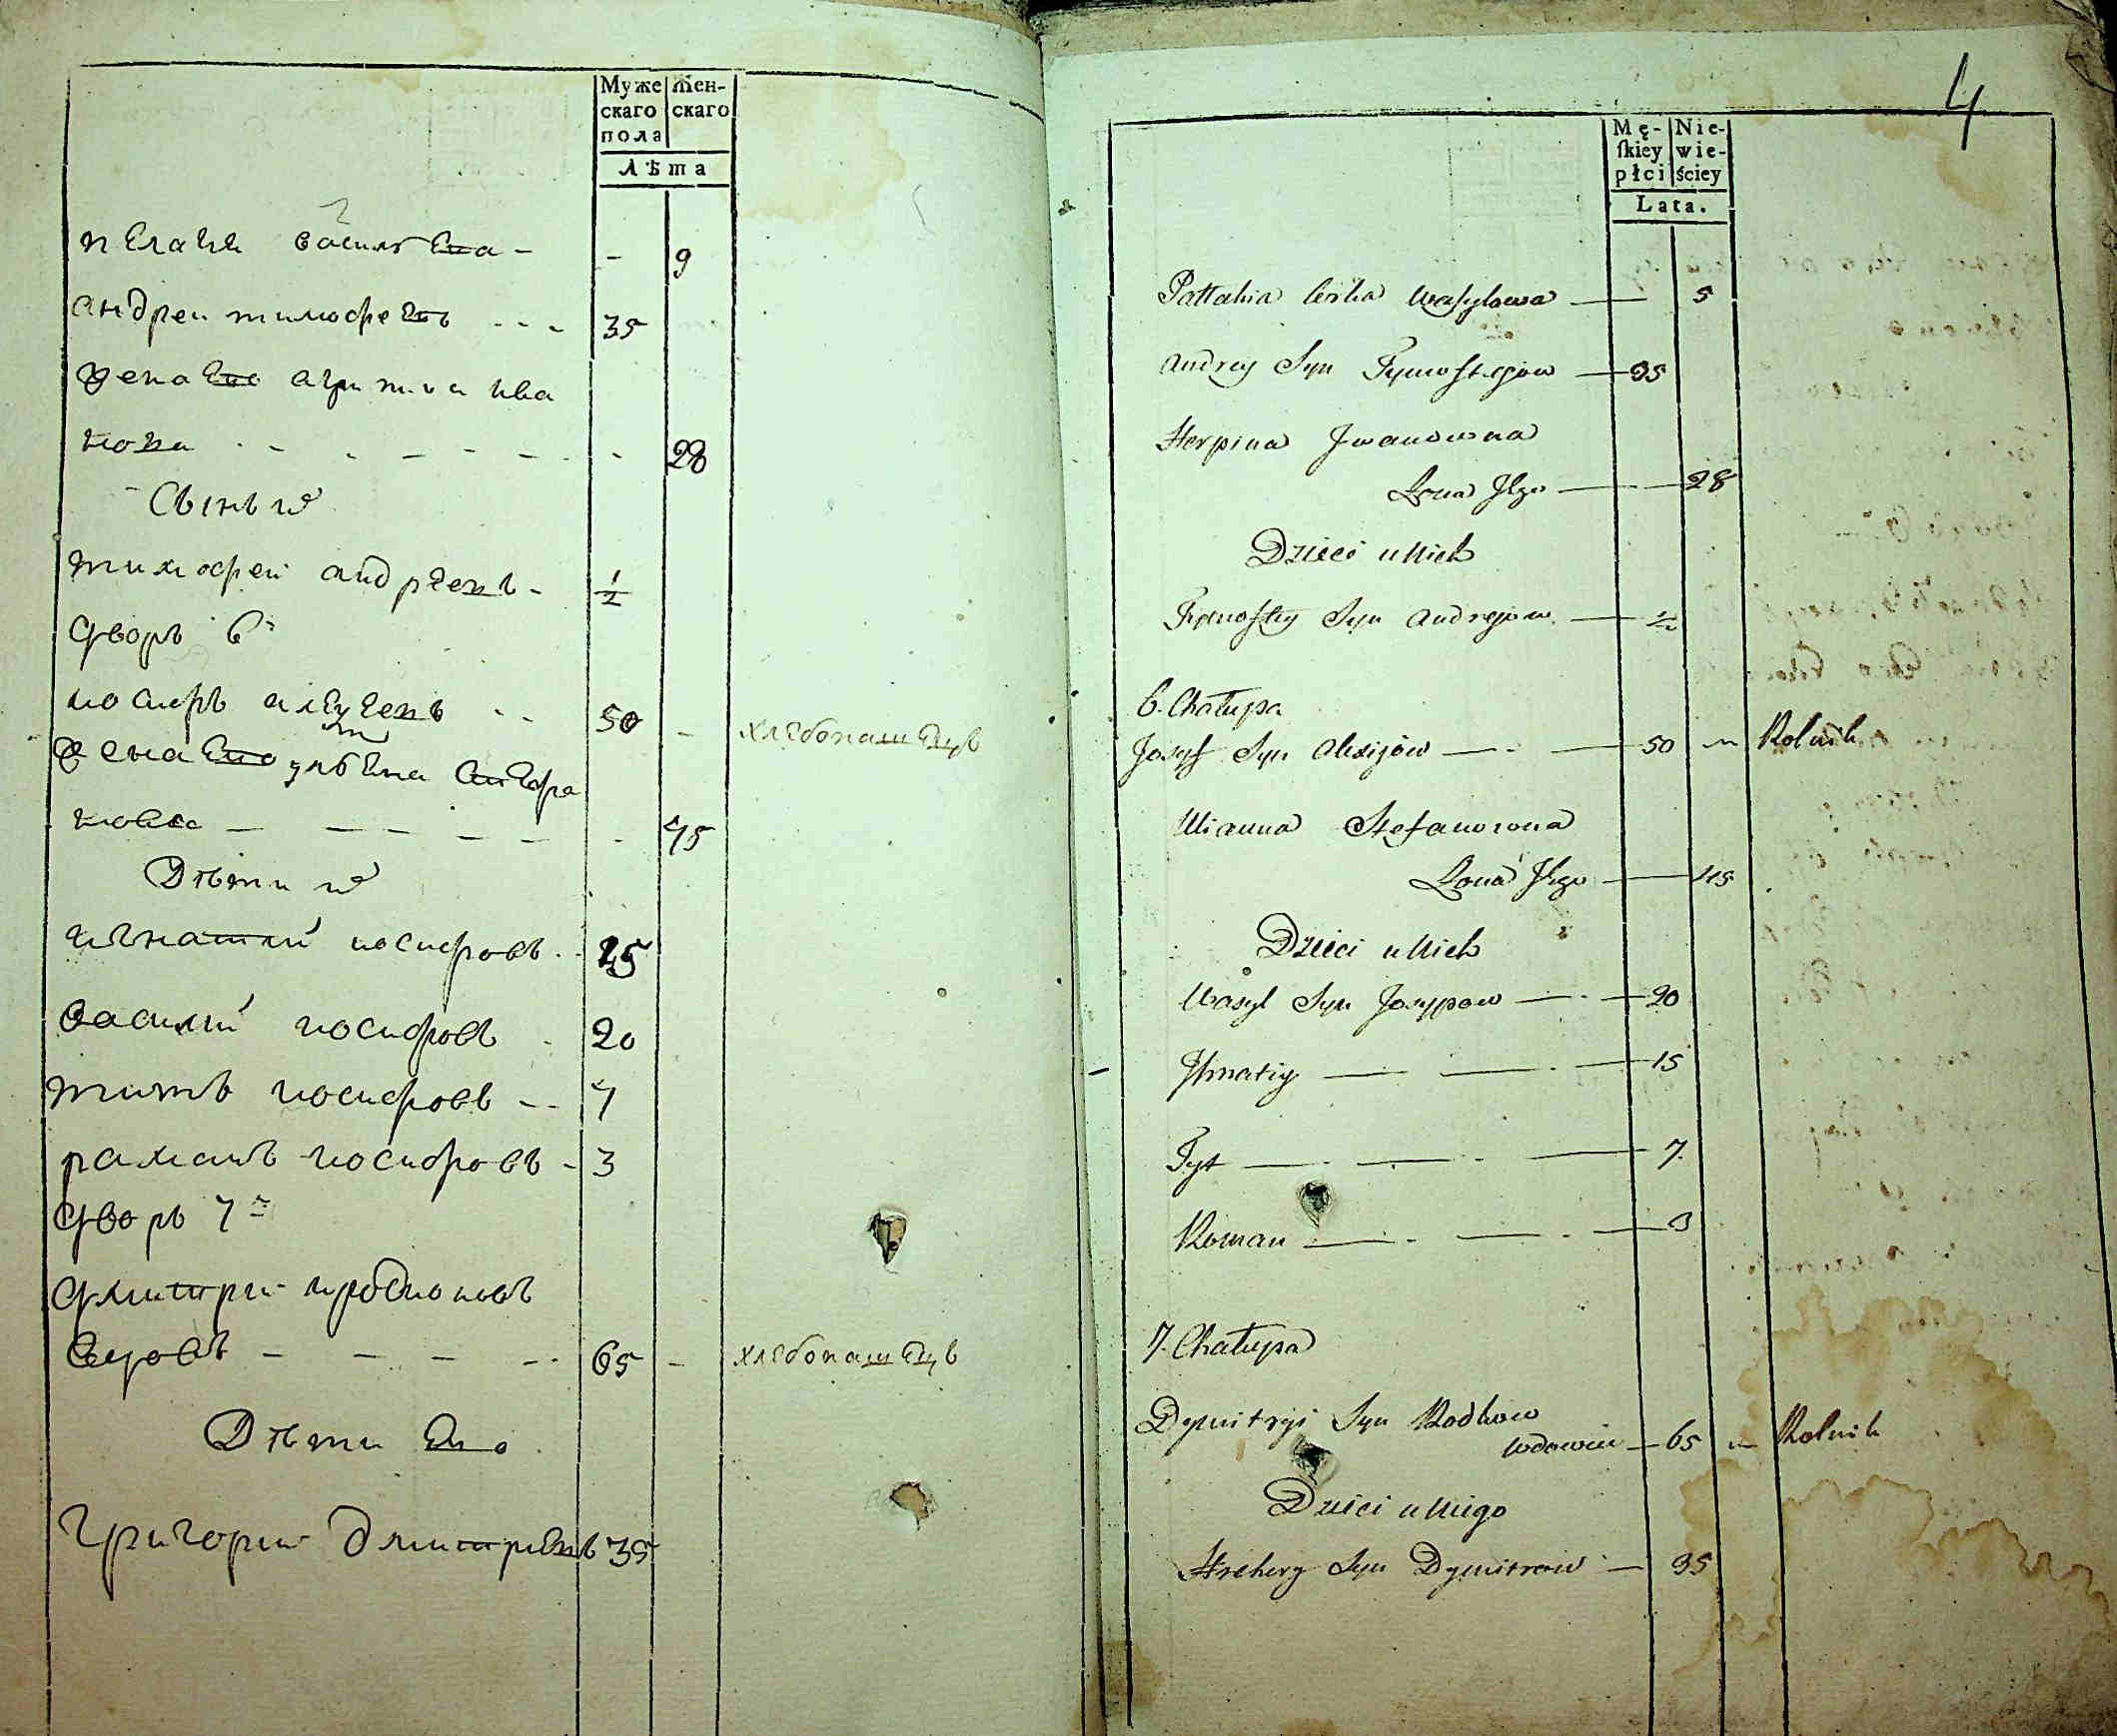 Муже
скаго
пола
Жен-
скаго
Лѣта
пелагея василѣва - - 9
андреи тимофеевъ - - - 35
жена его агрипина ива
нова - - - - - - 28
Сынъ их
тимофей андреевъ - 1/2
Дворъ 6й
иосифъ алеѯеевъ - - 50 - хлебопашецъ
жена его улѣена стефа
нова - - - - - - 45
Дѣти их
игнатий иосифовъ - 15
василий иосифовъ - 20
титъ иосифовъ - - 7
раманъ иосифовъ - 3
Дворъ 7й
Дмитри иродионовъ
вдовъ - - - - - 65 - хлебопашецъ
Дѣти его
Григории дмитриевъ 35
4
Mę-
ſkiey
płci
Nie-
wie-
ściey
Lata.
Pałtahia Corka Wasylowa — 5
Andrey Syn Tymofiejow — 35
Horpina Iwanowna
Żona Jego — 28
Dzieci u Nich
Tymofiey Syn Andrejow — 1/2
6. Chałupa
Josyf Syn Alexijow — 50 — Rolnik
Ulianna Stefanowna
Żona Jego — 45
Dzieci u Nich
Wasyl Syn Josypow — 20
Ihnatiy — 15
Tyt — 7
Roman — 3
7. Chałupa
Dymitryi Syn Rodkow
Wdowiec — 65 — Rolnik
Dzieci u Niego
Hrehory Syn Dymitrow — 35